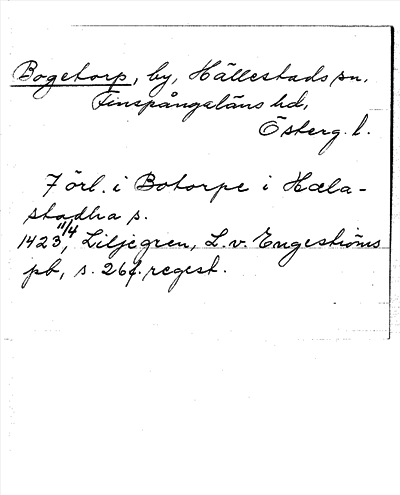 Bogetorp, by, Hällestads sn.
Finspångaläns hd,
Österg. l.
7 örl. i Botorpe i Hæla-
stadha s.
1423 11/4, Liljegren, L. v. Engeströms
pb, s. 264. regest.